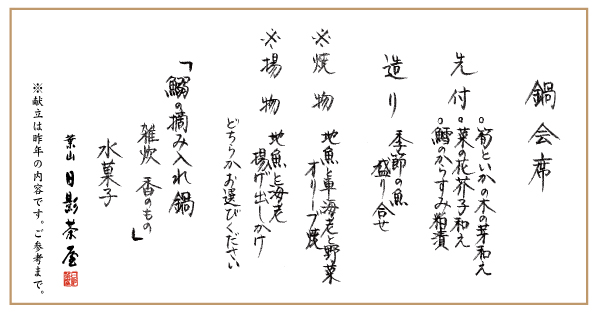 鍋会席
先付
。筍といかの木の芽和え
。菜の花芥子和え
。鱈のからすみ粕漬
造り
季節の魚
盛り合せ
※焼物
地魚と車海老と野菜
オリーブ焼
※揚物
地魚と海老
揚げ出しかけ
どちらかお選びください
「鰯の摘み入れ鍋
雑炊 香のもの」
水菓子
葉山 日影茶屋
※献立は昨年の内容です。ご参考まで。